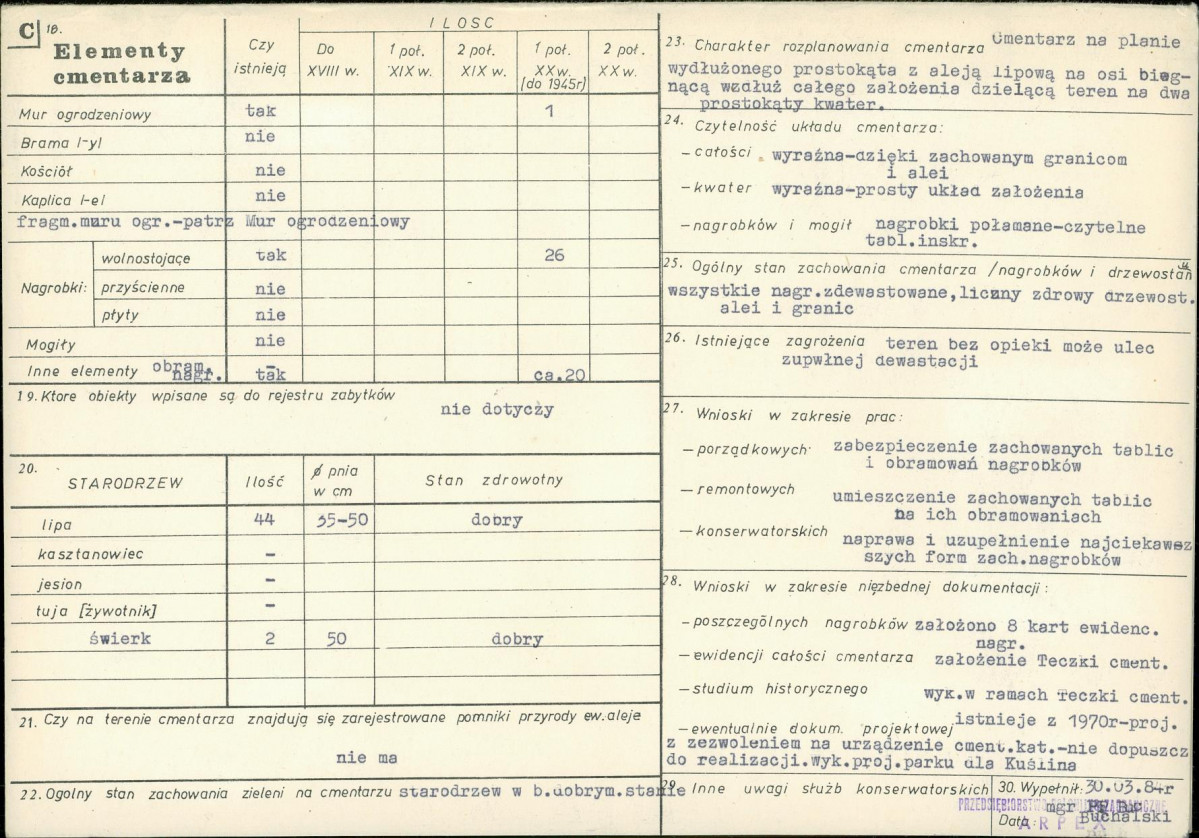 C 18. Elementy cmentarza
Czy istnieją
ILOSC
Do XVIII w.
1 poł. XIX w.
2 poł. XIX w.
1 poł. XX w. (do 1945r)
2 poł. XX w.
Mur ogrodzeniowy tak 1
Brama I-yl nie
Kościół nie
Kaplica I-el nie
fragm.muru ogr.-patrz Mur ogrodzeniowy
Nagrobki: wolnostojące tak 26
przyścienne nie
płyty nie
Mogiły nie
Inne elementy obram. nagr. tak ca.20
19. Ktore obiekty wpisane są do rejestru zabytków
nie dotyczy
20. STARODRZEW Ilość ø pnia w cm Stan zdrowotny
lipa 44 35-50 dobry
kasztanowiec -
jesion -
tuja [żywotnik] -
świerk 2 50 dobry
21. Czy na terenie cmentarza znajdują się zarejestrowane pomniki przyrody ew. aleje
nie ma
22. Ogolny stan zachowania zieleni na cmentarzu starodrzew w b.dobrym.stanie
23. Charakter rozplanowania cmentarza Cmentarz na planie
wydłużonego prostokąta z aleją lipową na osi bieg-
nącą wzdłuż całego założenia dzielącą teren na dwa
prostokąty kwater.
24. Czytelność układu cmentarza:
- całości wyraźna-dzięki zachowanym granicom
i alei
- kwater wyraźna-prosty układ założenia
- nagrobków i mogił nagrobki połamane-czytelne
tabl.inskr.
25. Ogólny stan zachowania cmentarza /nagrobków i drzewostan
wszystkie nagr.zdewastowane,liczny zdrowy drzewost.
alei i granic
26. Istniejące zagrożenia teren bez opieki może ulec
zupwłnej dewastacji
27. Wnioski w zakresie prac:
- porządkowych zabezpieczenie zachowanych tablic
i obramowań nagrobków
- remontowych umieszczenie zachowanych tablic
na ich obramowaniach
- konserwatorskich naprawa i uzupełnienie najciekawsz
szych form zach.nagrobków
28. Wnioski w zakresie niezbednej dokumentacji:
- poszczególnych nagrobków założono 8 kart ewidenc.
nagr.
- ewidencji całości cmentarza założenie Teczki cment.
- studium historycznego wyk.w ramach Teczki cment.
- ewentualnie dokum. projektowej istnieje z 1970r-proj.
z zezwoleniem na urządzenie cment.kat.-nie dopuszcz
do realizacji.wyk.proj.parku dla Kuślina
29 Inne uwagi służb konserwatorskich
30. Wypełnił: 30.03.84r
mgr
Buchalski
Data:
ARPEX